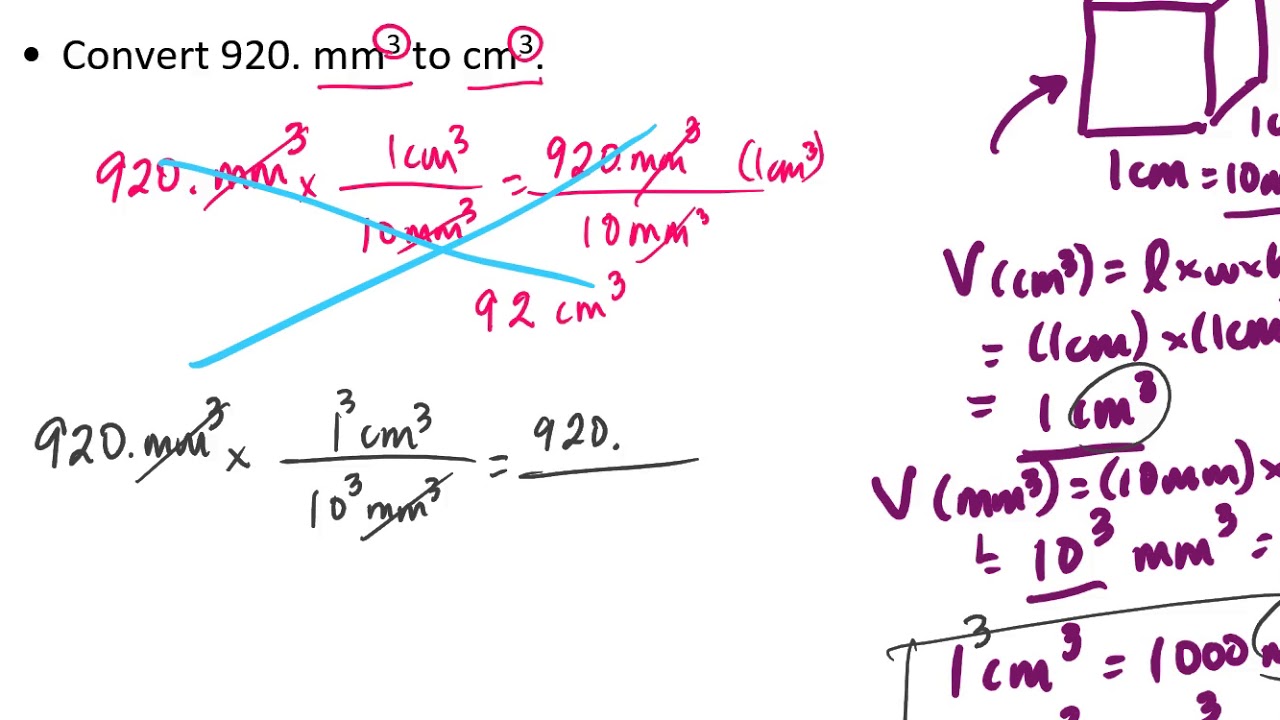 • Convert 920. mm³ to cm³.
920. mm³ × 1cm³ / 10 mm³ = 920. mm³ (1cm³) / 10 mm³
92 cm³
920. mm³ × 1³ cm³ / 10³ mm³ = 920.
1cm = 10
V (cm³) = l × w ×
= (1cm) × (1cm
= 1 cm³
V (mm³) = (10mm) ×
= 10³ mm³ =
1³ cm³ = 1000